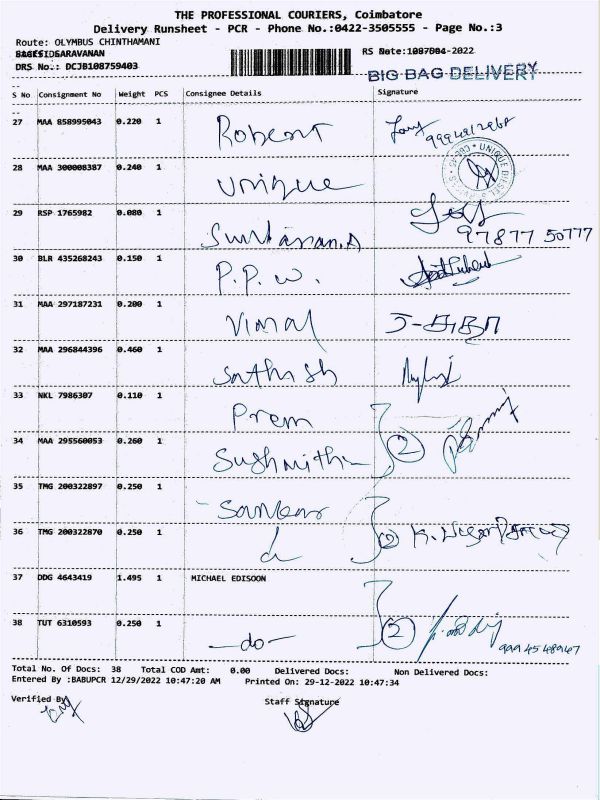 THE PROFESSIONAL COURIERS, Coimbatore
Delivery Runsheet - PCR - Phone No.:0422-3505555 - Page No.:3
Route: OLYMBUS CHINTHAMANI
DRS No.: DCJB108759403
BIG BAG DELIVERY
S No Consignment No Weight PCS Consignee Details Signature
27 MAA 858995043 0.220 1 Robert
28 MAA 300008387 0.240 1 Unique
UNIQUE
29 RSP 1765982 0.080 1 97877 50777
30 BLR 435268243 0.150 1 P.P.W.
31 MAA 297187231 0.200 1 Vimal
32 MAA 296844396 0.460 1 Sathish
33 NKL 7986307 0.110 1 Prem
34 MAA 295560053 0.260 1 Sushmitha 2
35 TMG 200322897 0.250 1 Sankar
36 TMG 200322870 0.250 1 2
37 DDG 4643419 1.495 1 MICHAEL EDISOON
38 TUT 6310593 0.250 1 -do- 2
Total No. Of Docs: 38 Total COD Amt: 0.00 Delivered Docs: Non Delivered Docs:
Entered By :BABUPCR 12/29/2022 10:47:20 AM Printed On: 29-12-2022 10:47:34
Verified By Staff Signature